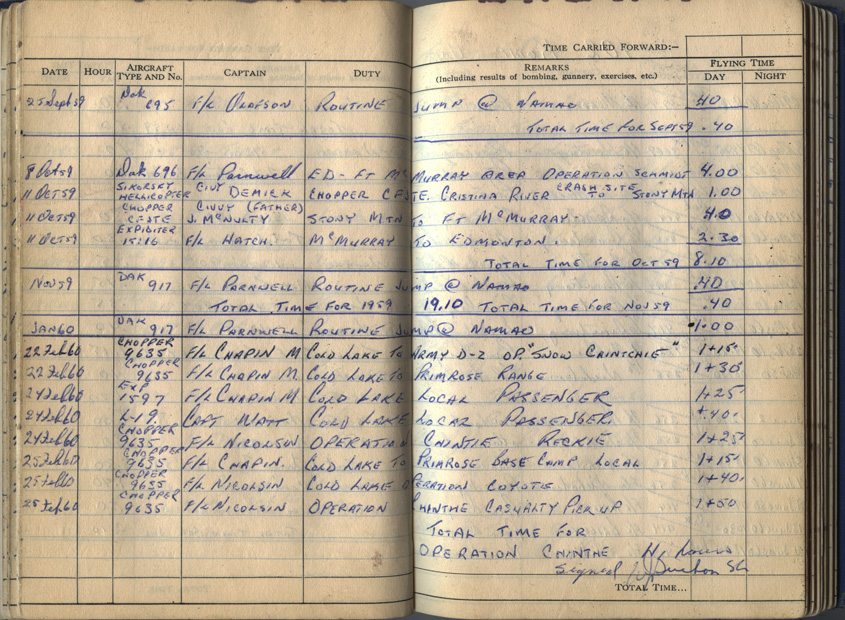 TIME CARRIED FORWARD:—
DATE HOUR AIRCRAFT TYPE AND No. CAPTAIN DUTY REMARKS (Including results of bombing, gunnery, exercises, etc.) FLYING TIME DAY NIGHT
25 Sept 59 Dak 695 F/L OLAFSON ROUTINE JUMP @ NAMAO .40
TOTAL TIME FOR SEPT 59 .40
8 Oct 59 Dak 696 F/L Parnwell ED - FT McMURRAY AREA OPERATION SCHMIDT 4.00
11 OCT 59 SIKORSKY HELLICOPTER CIVY DEMICK CHOPPER CFSTE. CRISTINA RIVER CRASH SITE TO STONY MTN 1.00
11 OCT 59 CHOPPER CFSTE CIVVY (FATHER) J. McNULTY STONY MTN TO FT McMURRAY. 40
11 OCT 59 EXPIDITER 1516 F/L HATCH. McMURRAY TO EDMONTON. 2.30
TOTAL TIME FOR OCT 59 8.10
NOV 59 DAK 917 F/L PARNWELL ROUTINE JUMP @ NAMAO .40
TOTAL TIME FOR 1959 19.10 TOTAL TIME FOR NOV 59 .40
JAN 60 DAK 917 F/L PARNWELL ROUTINE JUMP @ NAMAO 1.00
22 Feb 60 CHOPPER 9635 F/L CHAPIN M COLD LAKE TO ARMY D-Z OP. "SNOW CHINTCHIE" 1+15
22 Feb 60 CHOPPER 9635 F/L CHAPIN M COLD LAKE TO PRIMROSE RANGE 1+30
24 Feb 60 EXP 1597 F/L CHAPIN M COLD LAKE LOCAL PASSENGER 1+25
24 Feb 60 L-19. CAPT MATT COLD LAKE LOCAL PASSENGER +40
24 Feb 60 CHOPPER 9635 F/L NICOLSIN OPERATION CHINTIE RECKIE 1+25
25 Feb 60 CHOPPER 9635 F/L CHAPIN. COLD LAKE TO PRIMROSE BASE CAMP LOCAL 1+15
25 Feb 60 CHOPPER 9635 F/L NICOLSIN COLD LAKE OPERATION COYOTE 1+40
25 Feb 60 CHOPPER 9635 F/L NICOLSIN OPERATION CHINTHE CASUALTY PICK UP 1+50
TOTAL TIME FOR
OPERATION CHINTHE
Signed
TOTAL TIME...